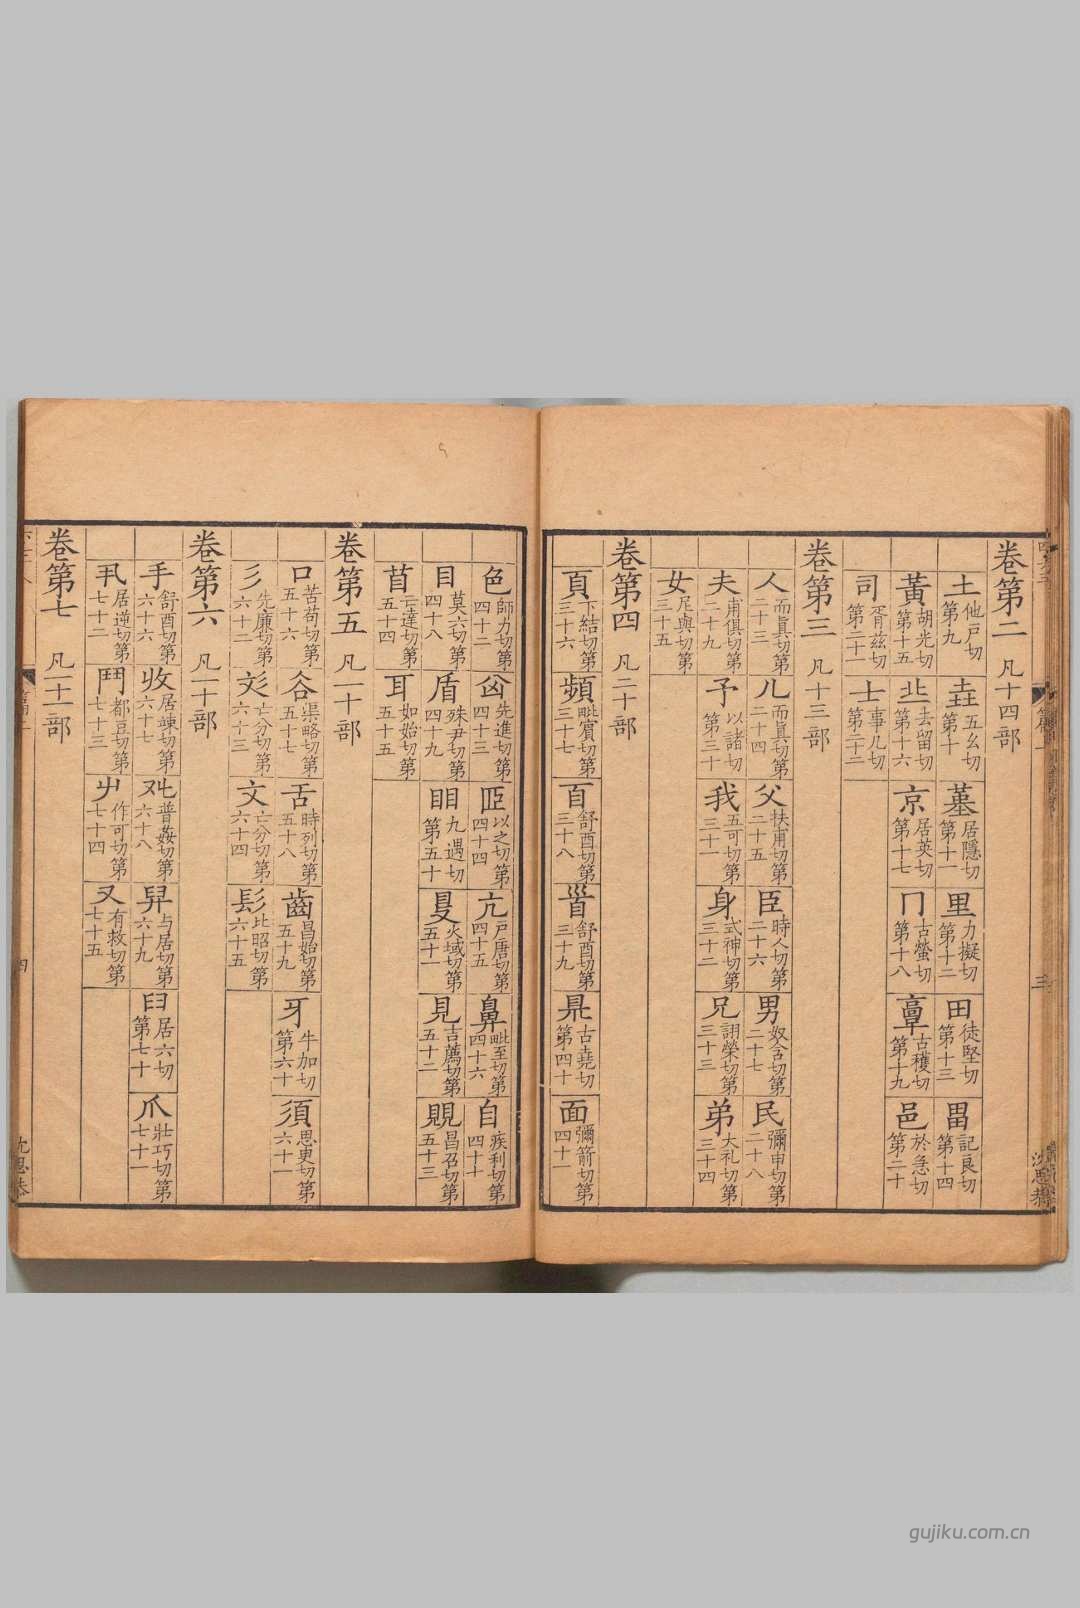 卷第二　凡十四部
土他戸切第九　垚五幺切第十　堇居隱切第十一　里力擬切第十二　田徒堅切第十三　畕記良切第十四
黃胡光切第十五　丘去留切第十六　京居英切第十七　冂古螢切第十八　𩫏古穫切第十九　邑於急切第二十
司胥兹切第二十一　士事几切第二十二
卷第三　凡十三部
人而真切第二十三　儿而真切第二十四　父扶甫切第二十五　臣時人切第二十六　男奴含切第二十七　民彌申切第二十八
夫甫俱切第二十九　予以諸切第三十　我五可切第三十一　身式神切第三十二　兄詡榮切第三十三　弟大礼切第三十四
女尼與切第三十五
卷第四　凡二十部
頁下結切第三十六　頻毗賓切第三十七　百舒酉切第三十八　首舒酉切第三十九　県古堯切第四十　面彌箭切第四十一
色師力切第四十二　囟先進切第四十三　𦣝以之切第四十四　亢戸唐切第四十五　鼻毗至切第四十六　自疾利切第四十七
目莫六切第四十八　盾殊尹切第四十九　䀠九遇切第五十　𥄎火域切第五十一　見吉薦切第五十二　覞昌召切第五十三
𥄕亡達切第五十四　耳如始切第五十五
卷第五　凡一十部
口苦苟切第五十六　谷渠略切第五十七　舌時列切第五十八　齒昌始切第五十九　牙牛加切第六十　須思臾切第六十一
彡先廉切第六十二　彣亡分切第六十三　文亡分切第六十四　髟比昭切第六十五
卷第六　凡一十部
手舒酉切第六十六　收居竦切第六十七　𠬜普姦切第六十八　舁与居切第六十九　𦥑居六切第七十　爪壯巧切第七十一
丮居逆切第七十二　鬥都豆切第七十三　𠂇作可切第七十四　又有救切第七十五
卷第七　凡十一部
gujiku.com.cn